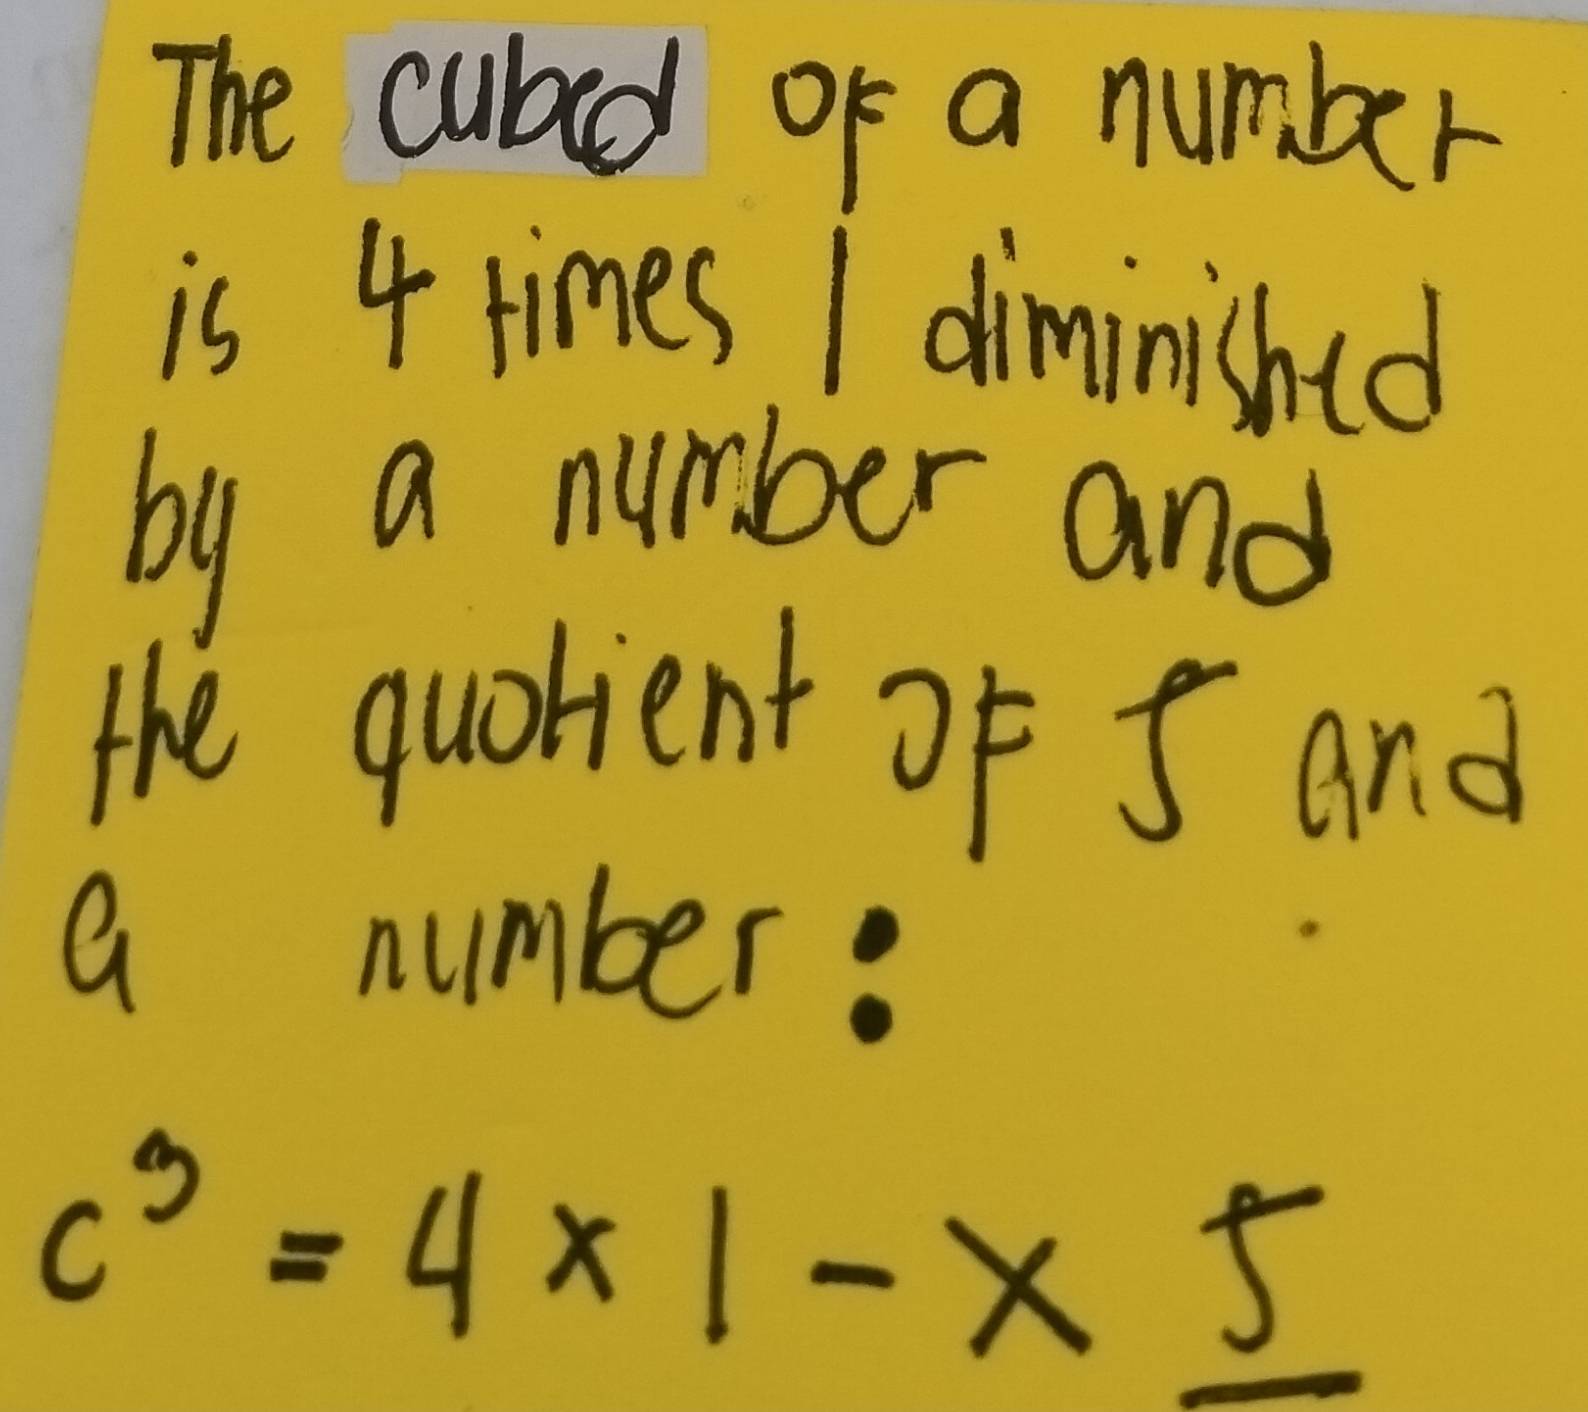 The cubed of a number
is 4 times 1 diminished
by a number and
the quotient of 5 and
a number:
c³ = 4 × 1 - x 5